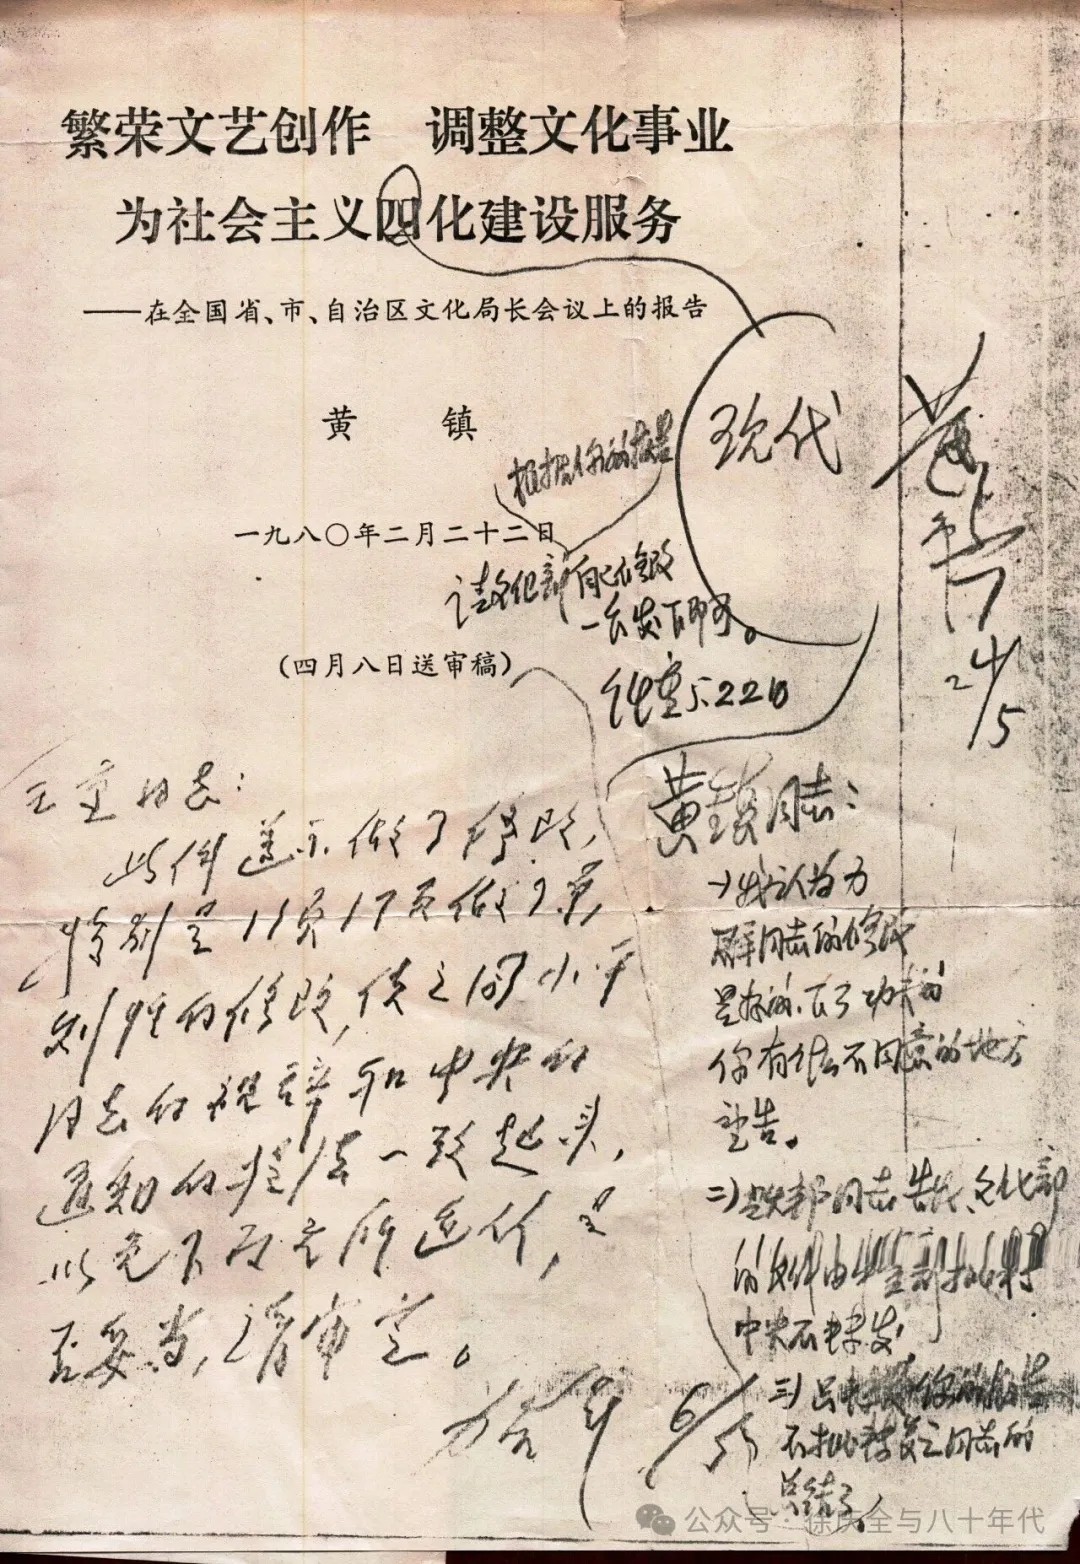 繁荣文艺创作　调整文化事业
为社会主义四化建设服务
——在全国省、市、自治区文化局长会议上的报告
黄　镇
现代
根据你的报告
一九八〇年二月二十二日
请文化部自己修改
一台发下即可。
(四月八日送审稿)
5.22日
24/5
王 同志:
此件遵示做了修改,
特别是11页17页做了原
则性的修改,使之同小平
同志的祝辞和中央的
通知的 法一致起来,
以免下面无所适从,是
否妥当,请审定。
力群 6/5
黄镇同志:
一)我认为力
群同志的修改
是好的,下了功夫的
你有什么不同意的地方
望告。
二)耀邦同志告我,文化部
的文件由中宣部批
中央不 发
三)只 你的报告
不批 同志的
总结了。
公众号·徐庆全与八十年代